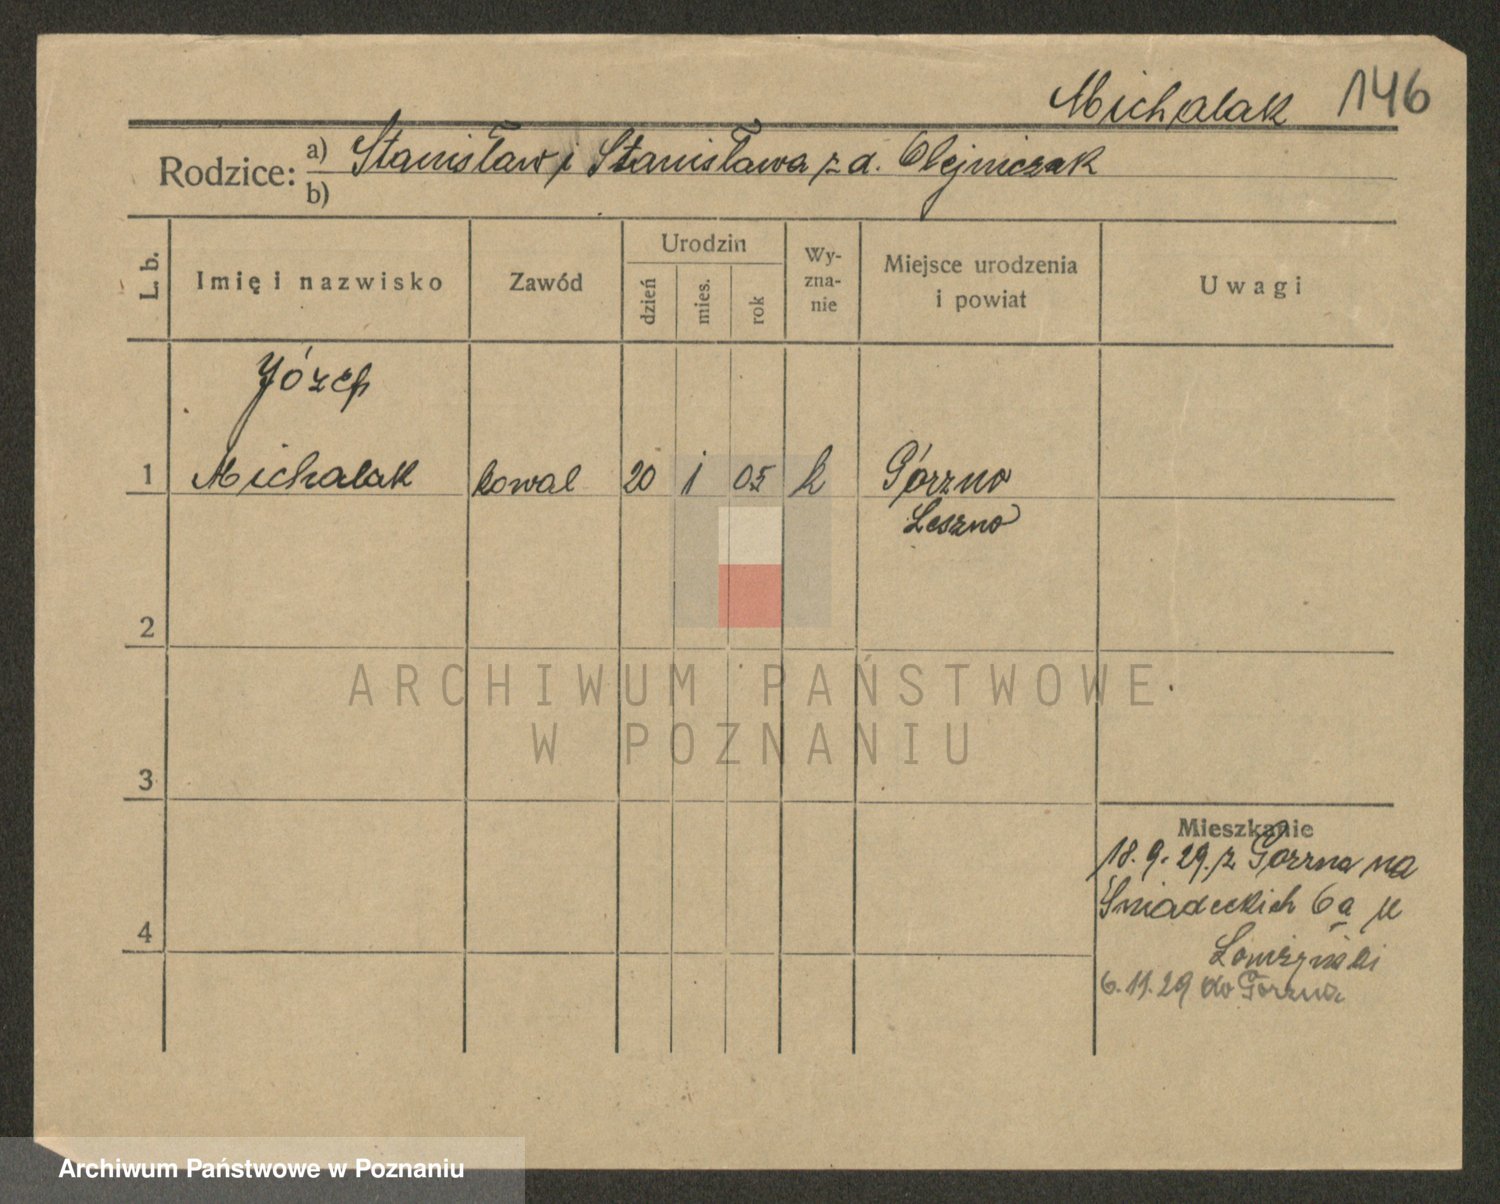 Michalak 146
Rodzice: a) Stanisław i Stanisława z d. Olejniczak
b)
L. b. Imię i nazwisko Zawód Urodzin dzień mies. rok Wy-zna-nie Miejsce urodzenia i powiat Uwagi
Józef
1 Michalak kowal 20 1 05 k Górzno
Leszno
2
ARCHIWUM PAŃSTWOWE
W POZNANIU
3
Mieszkanie
18.9.29. z Gorzna na
Śniadeckich 6a u
4
6.11.29 do Gorzna
Archiwum Państwowe w Poznaniu